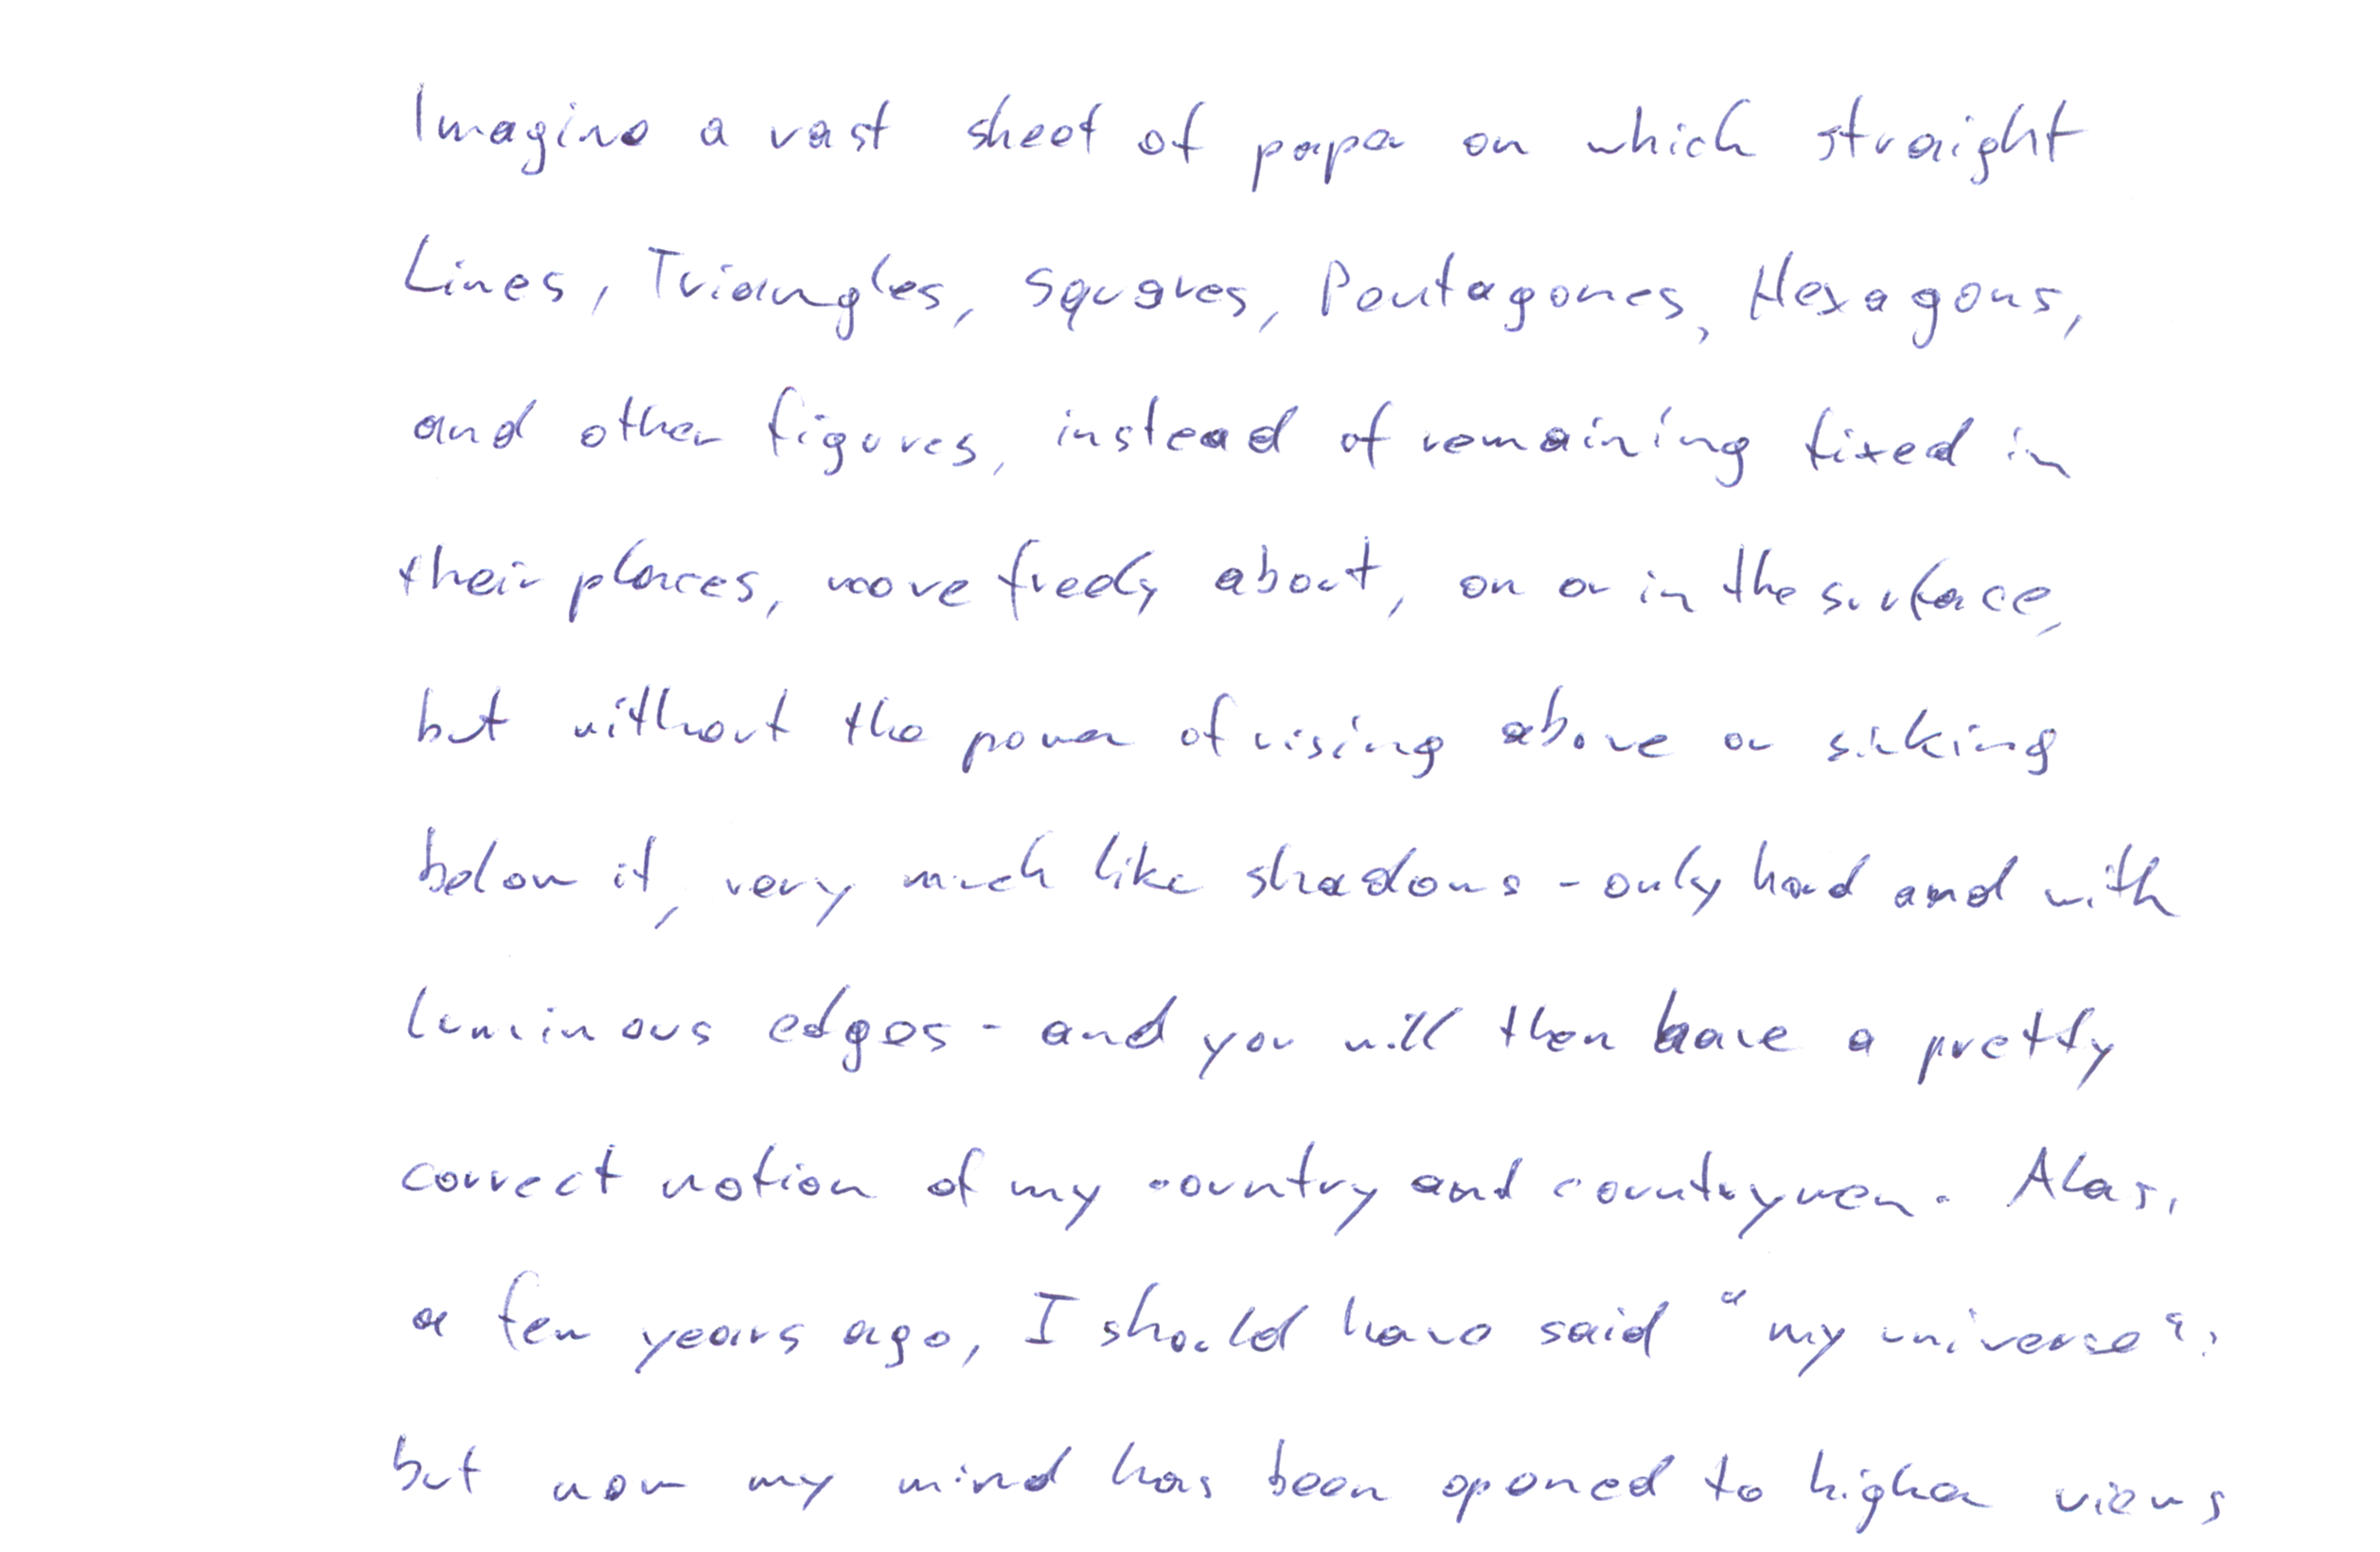 Imagine a vast sheet of paper on which straight
Lines, Triangles, Squares, Pentagones, Hexagons,
and other figures, instead of remaining fixed in
their places, move freely about, on or in the surface,
but without the power of rising above or sinking
below it, very much like shadows - only hard and with
luminous edges - and you will then have a pretty
correct notion of my country and countrymen. Alas,
a few years ago, I should have said "my universe":
but now my mind has been opened to higher views